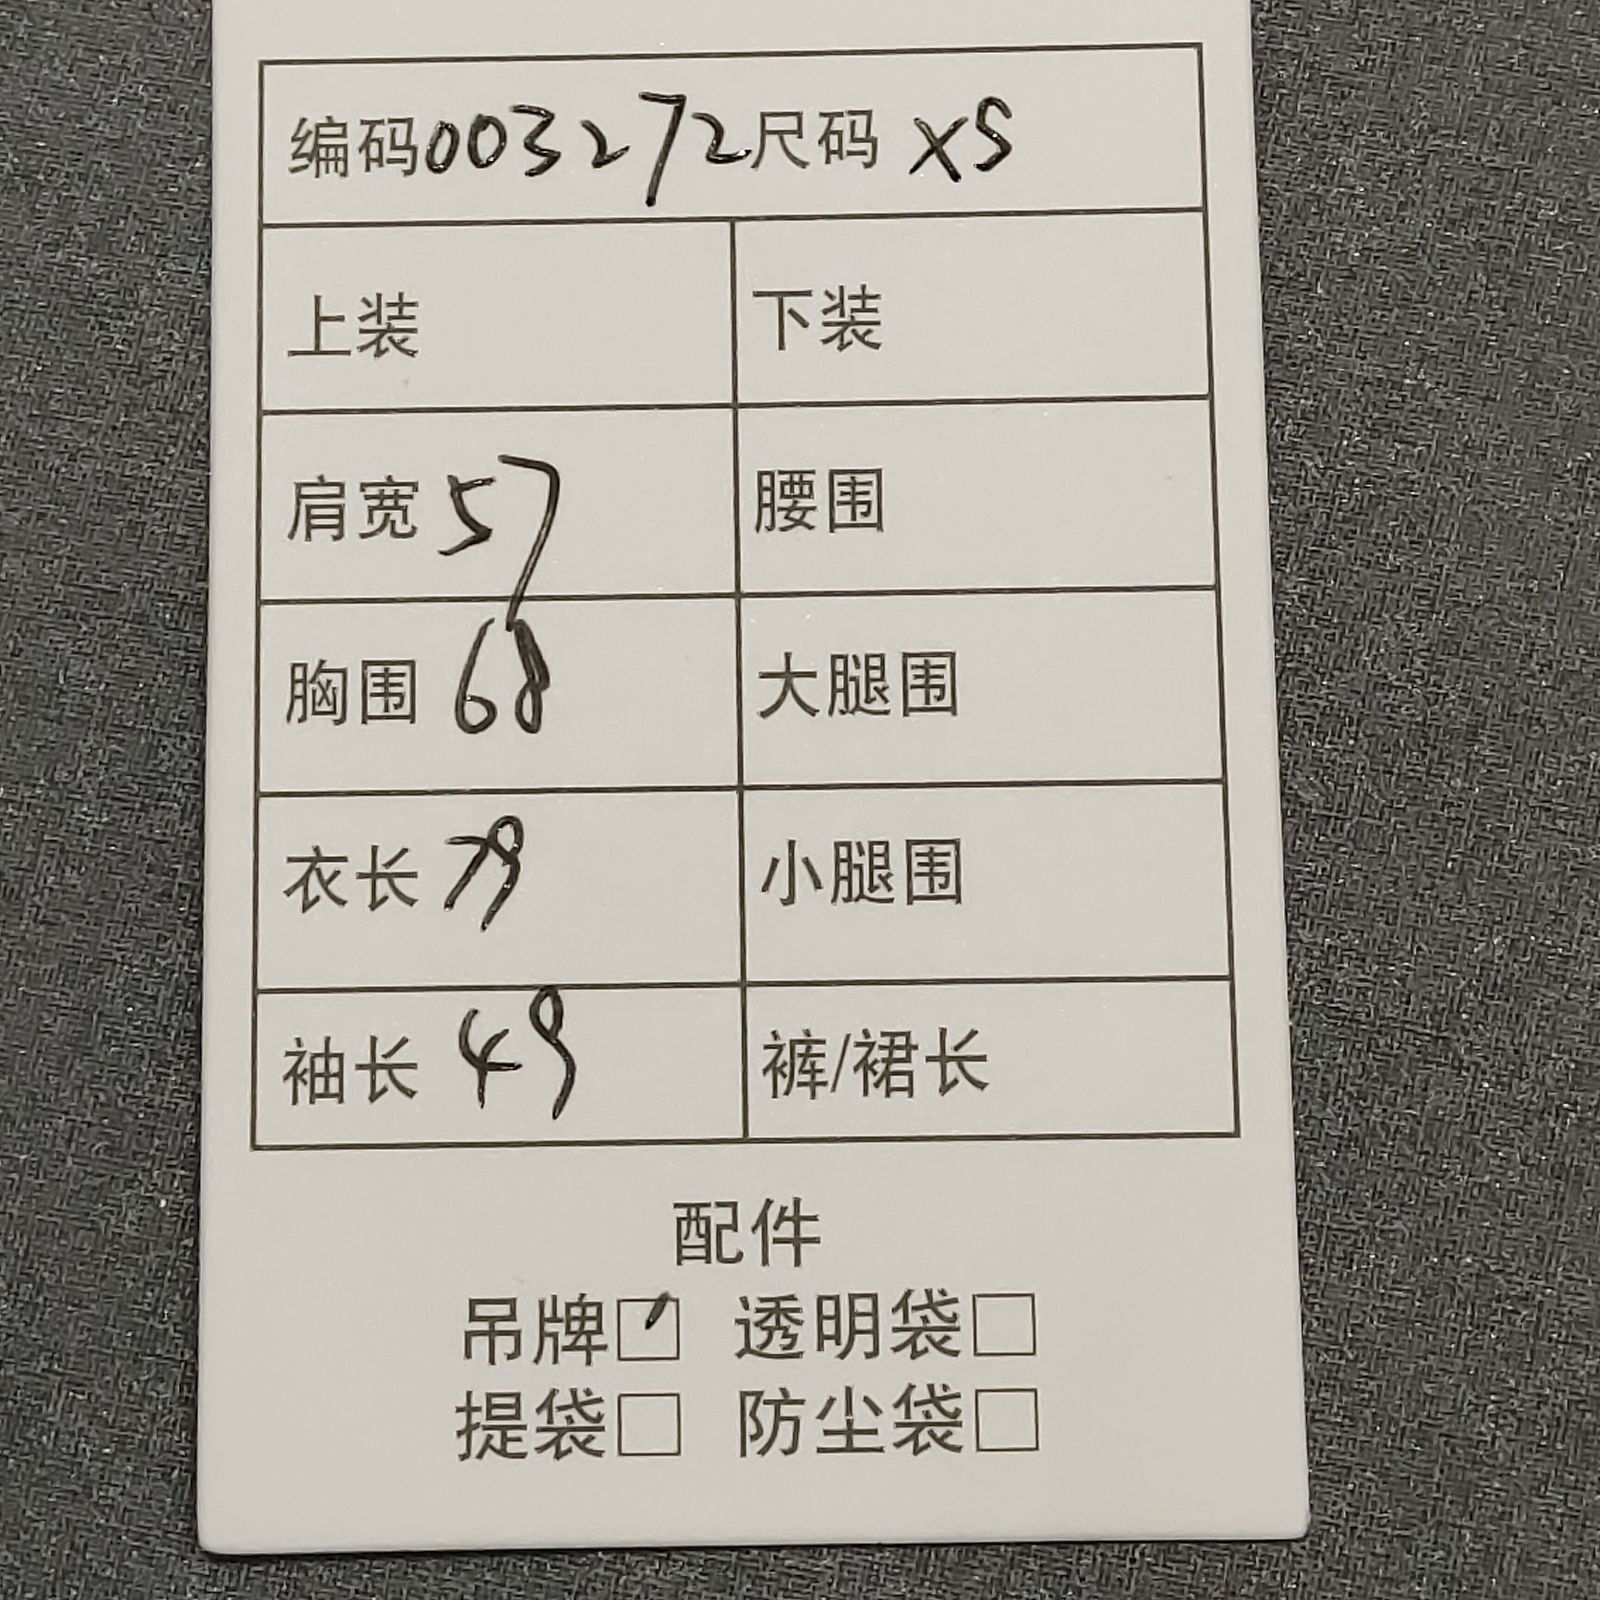 编码003272尺码 XS
上装 下装
肩宽 57 腰围
胸围 68 大腿围
衣长 79 小腿围
袖长 49 裤/裙长
配件
吊牌☑ 透明袋□
提袋□ 防尘袋□